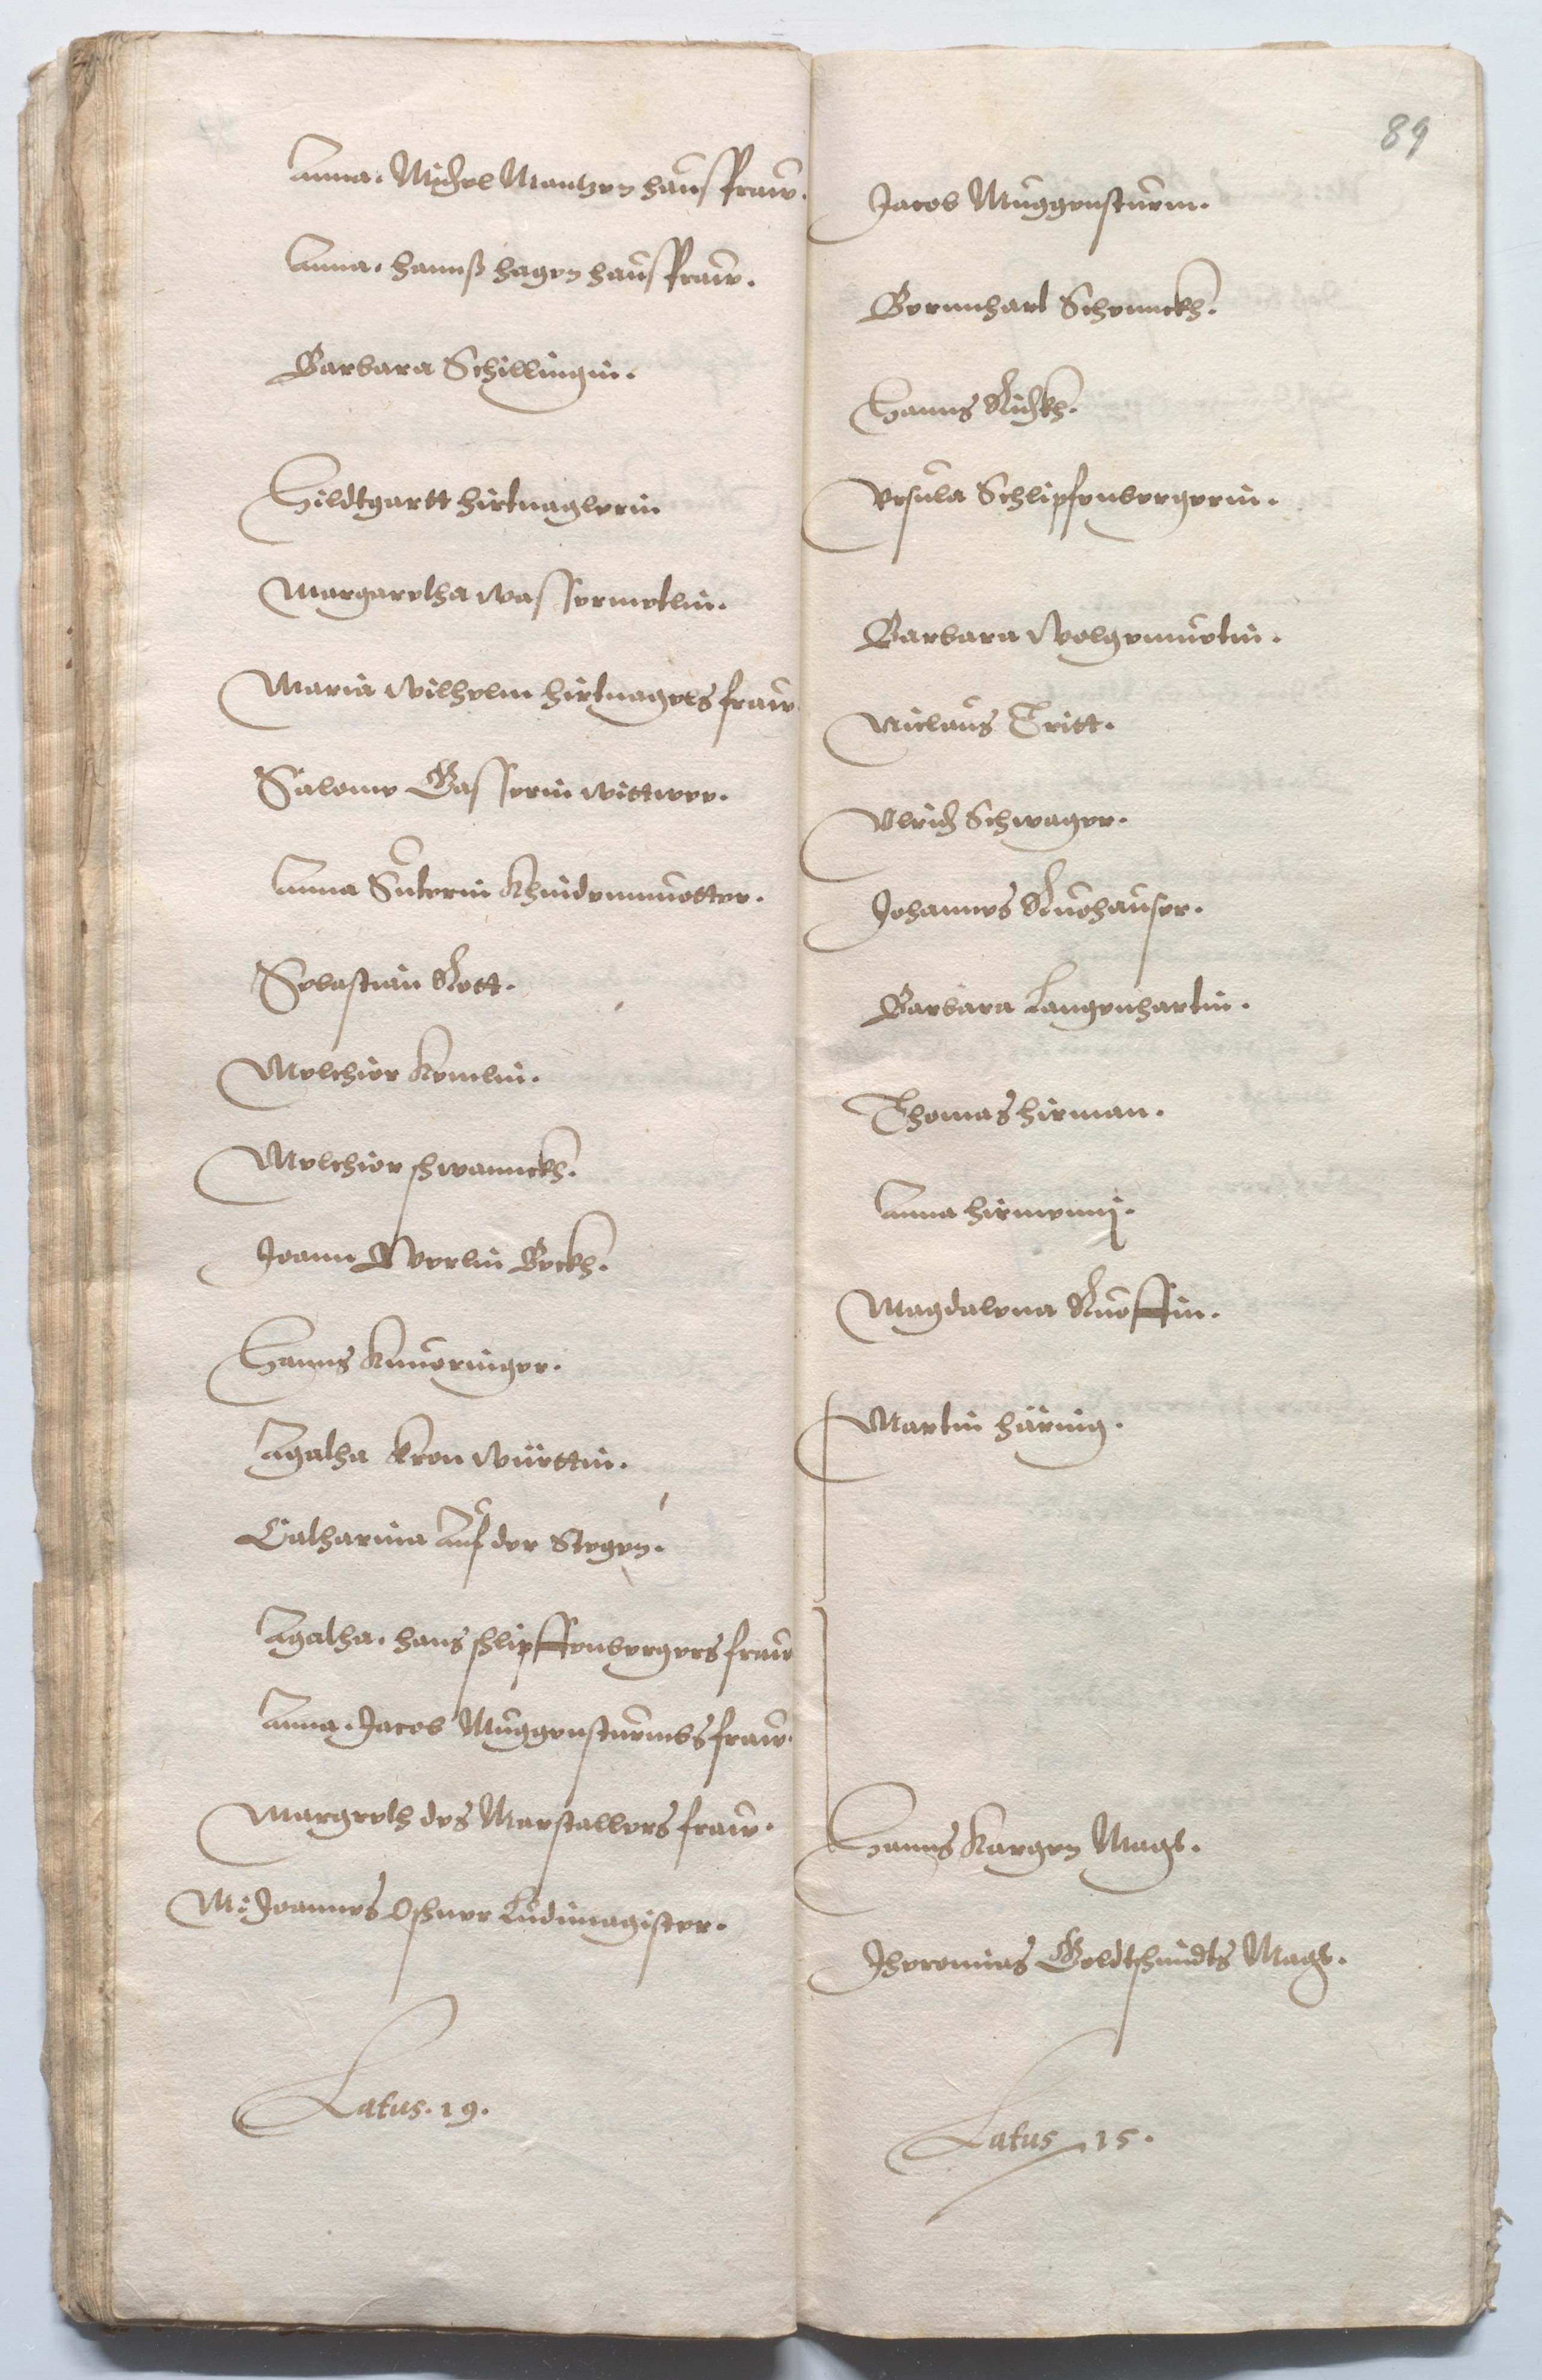 Anna. Michel Mantzen haußfraw.
Anna. hannß hagen haußfraw.
Barbara Schillingin.
Hildtgartt hirtnaglerin
Margaretha wassermetlin.
Maria Wilhelm hirtnagels fraw
Salome Gasserin wittwer.
Anna Suterin Khindenmuotter.
Sebastian Rott.
Melchior Kemlin.
Melchior schwannckh.
Joann Werlin Beckh.
Hanns Knuoringer.
Agatha Kron Württin.
Catharina Auf der Stegen.
Agatha. hans schlipffenbergers fraw
Anna. Jacob Muggensturmbs fraw.
Margreth des Marstallers fraw.
M: Joannes Oschner Ludimagister.
Latus. 19.
89
Jacob Muggensturm.
Bernnhart Schennckh.
Hanns Rickh.
Ursula Schlipfenbergerin.
Barbara Wolgemuetin.
Niclaus Tritt.
Ulrich Schwager.
Johannes Ruohauser.
Barbara Langenhartin.
Thomas hirman.
Anna hirmenin.
Magdalena Ruoffin.
Martin häring.
Hanns Kargen Magt.
Jheronimas Goldtschmidts Magt.
Latus 15.